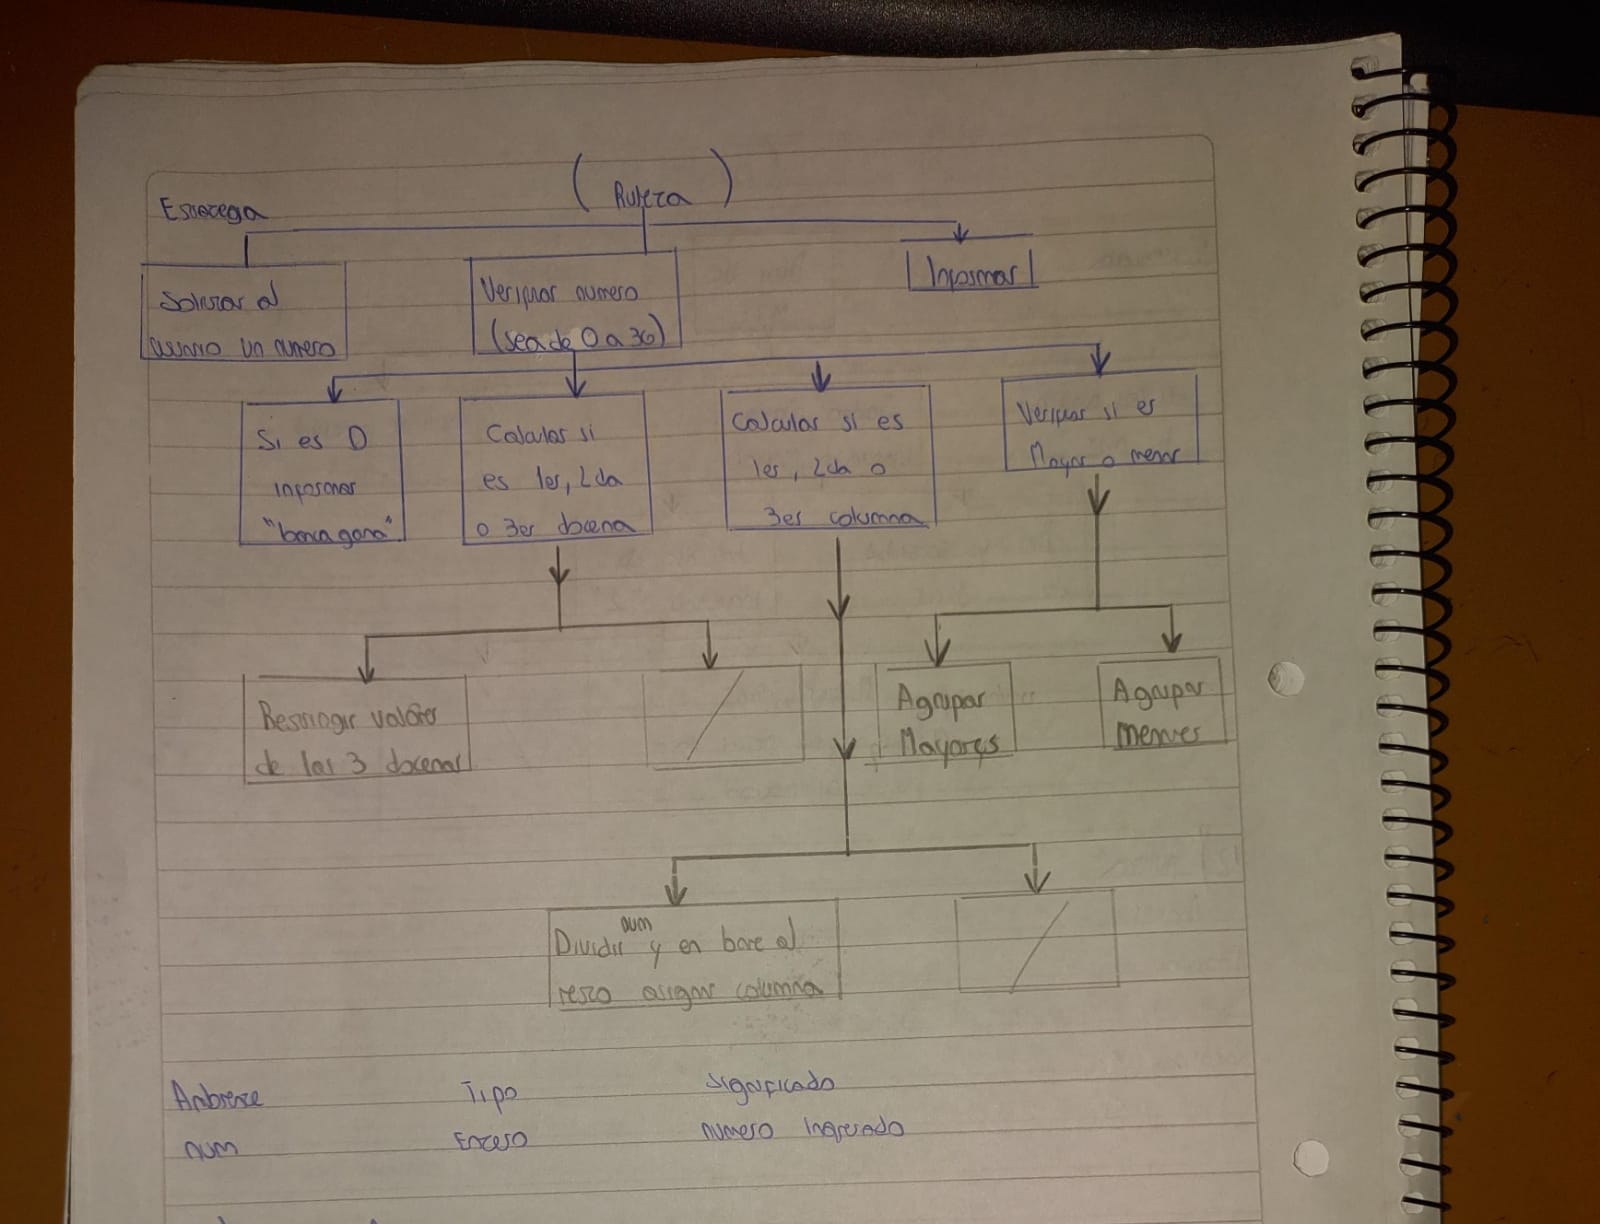 Estrategia
(Ruleta)
Solicitar al
usuario un numero
Verificar numero
(sea de 0 a 36)
Informar
Si es 0
informar
"banca gana"
Calcular si
es 1er, 2da
o 3er docena
Calcular si es
1er, 2da o
3er columna
Verificar si es
Mayor o menor
Restringir valores
de las 3 docenas
Agrupar
Mayores
Agrupar
menores
Dividir num y en base al
resto asignar columna
Ambiente Tipo Significado
num Entero numero ingresado